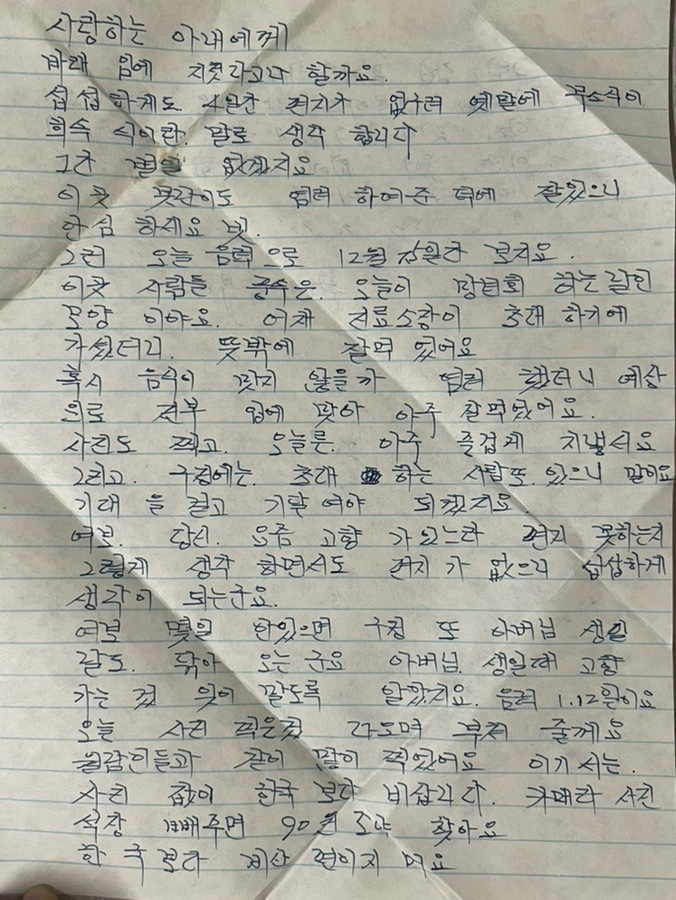 사랑하는 아내에께
바래 입에 지쳣다고나 할까요.
섭섭하게도 4일간 편지가 없구려 옛말에 무소식이
희속 식이란. 말로 생각 합니다
그간 별일 없겠지요
이곳 못난이도 염려 하여준 덕에 잘있으니
안심 하세요 넷.
그런 오늘 음력으로 12월 30일란 보지요.
이곳 사람들 풍속은. 오늘이 망년회 하는날인
모양 이야요. 어제 진료소장이 초대 하기에
가섰더니. 뜻밖에 잘먹 었어요
혹시 음식이 맞지 않을까 염려 했더니 예상
의로 전부 입에 맞아 아주 잘먹었어요.
사진도 찍고. 오늘은. 아주 즐겁게 지냇서요
그리고. 구정에는. 초대 하는 사람또. 있으니 말이요
기대 을 걸고 기달여야 되겠지요.
여보. 당신. 요즘 고향 가있는라 편지 못하는지
그렇게 생각 하면서도 편지가 없으니 섭섭하게
생각이 되는군요.
여보 몇일 만있으면 구정 또 아버님 생일
날도. 닦아 오는군요 아버님. 생일때 고향
가는 것 잊어 말도록 알았지요. 음력 1.12일이요
오늘 사진 찍은것 나오며 부처 줄께요
월남인들과 같이 많이 찍었어요 여기서는.
사진 값이 한국 보다 비쌉니다. 카메라 사진
석장 빼주면 90원 5약 찾아요
한국보다 비산 편이지 머요